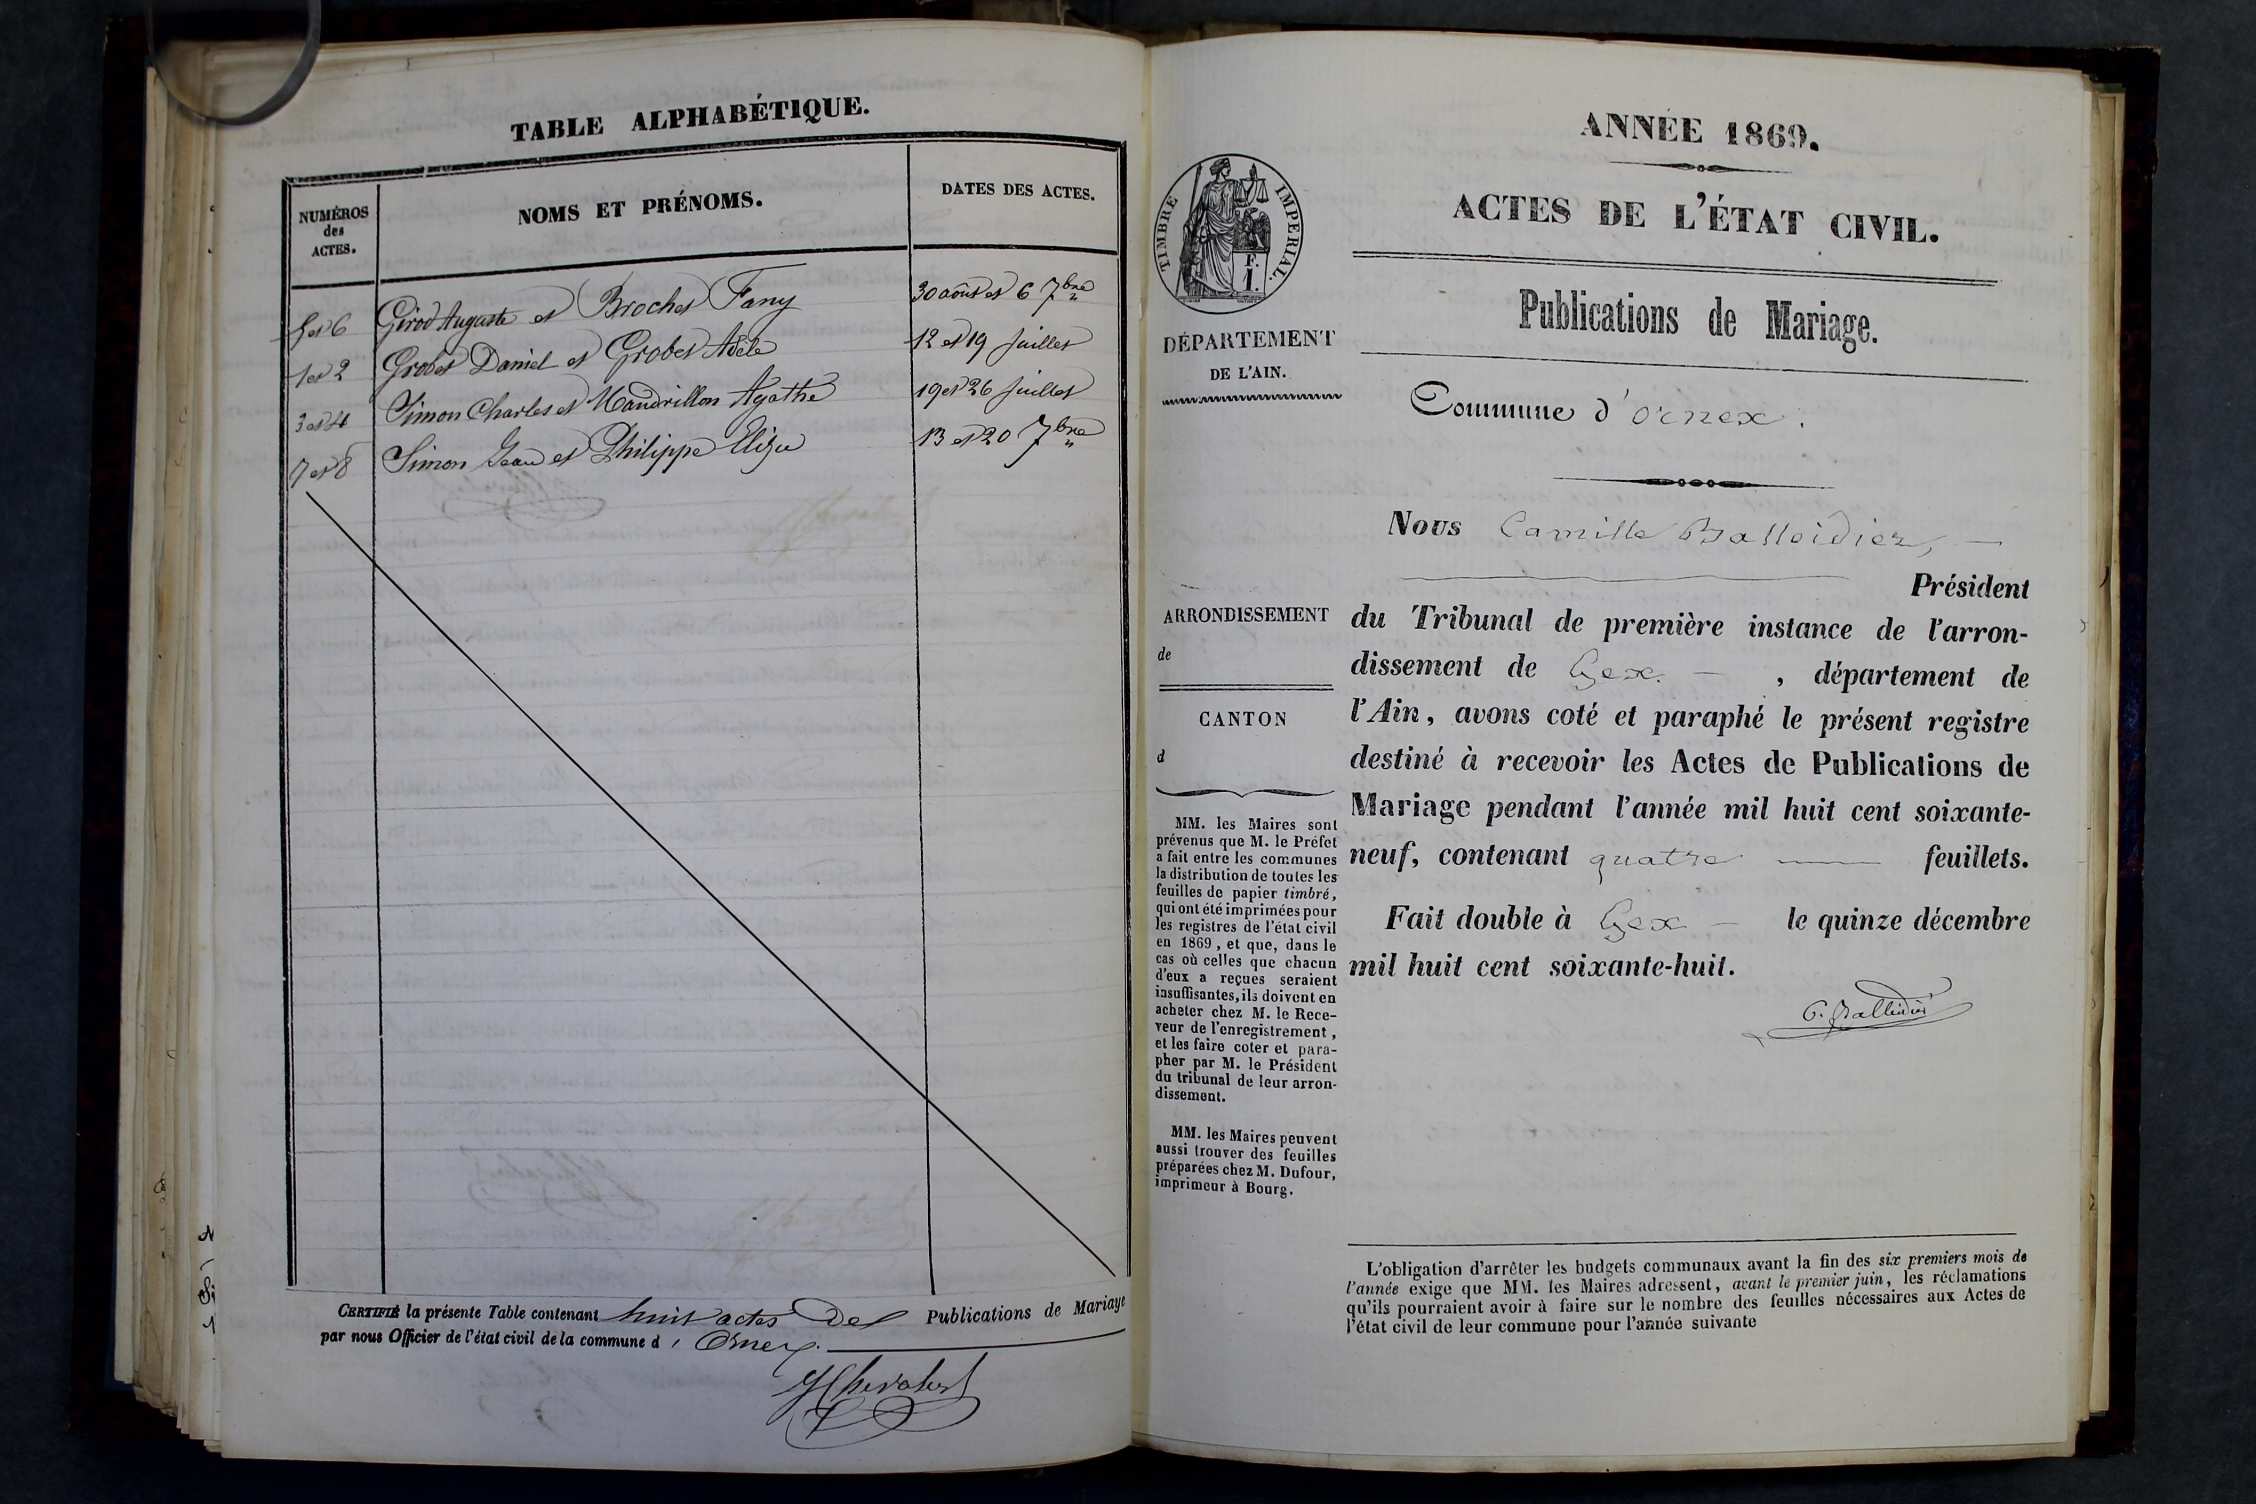 TABLE ALPHABÉTIQUE.
NUMÉROS
des
ACTES.
NOMS ET PRÉNOMS.
DATES DES ACTES.
5 et 6 Girod Auguste et Brochet Fany 30 août et 6 7bre
1 et 2 Grobet Daniel et Grobet Adèle 12 et 19 Juillet
3 et 4 Simon Charles et Mandrillon Agathe 19 et 26 Juillet
7 et 8 Simon Jean et Philippe Eliza 13 et 20 7bre
CERTIFIÉ la présente Table contenant huit actes de Publications de Mariage
par nous Officier de l'état civil de la commune d'Ornex.
ANNÉE 1869.
ACTES DE L'ÉTAT CIVIL.
TIMBRE IMPERIAL.
F.
1.
Publications de Mariage.
DÉPARTEMENT
DE L'AIN.
Commune d'Ornex.
Nous Camille Balleidier,
Président
ARRONDISSEMENT
de
CANTON
d
du Tribunal de première instance de l'arron-
dissement de Gex. , département de
l'Ain, avons coté et paraphé le présent registre
destiné à recevoir les Actes de Publications de
Mariage pendant l'année mil huit cent soixante-
neuf, contenant quatre feuillets.
Fait double à Gex le quinze décembre
mil huit cent soixante-huit.
C. Balleidier
MM. les Maires sont
prévenus que M. le Préfet
a fait entre les communes
la distribution de toutes les
feuilles de papier timbré,
qui ont été imprimées pour
les registres de l'état civil
en 1869, et que, dans le
cas où celles que chacun
d'eux a reçues seraient
insuffisantes, ils doivent en
acheter chez M. le Rece-
veur de l'enregistrement,
et les faire coter et para-
pher par M. le Président
du tribunal de leur arron-
dissement.
MM. les Maires peuvent
aussi trouver des feuilles
préparées chez M. Dufour,
imprimeur à Bourg.
L'obligation d'arrêter les budgets communaux avant la fin des six premiers mois de
l'année exige que MM. les Maires adressent, avant le premier juin, les réclamations
qu'ils pourraient avoir à faire sur le nombre des feuilles nécessaires aux Actes de
l'état civil de leur commune pour l'année suivante